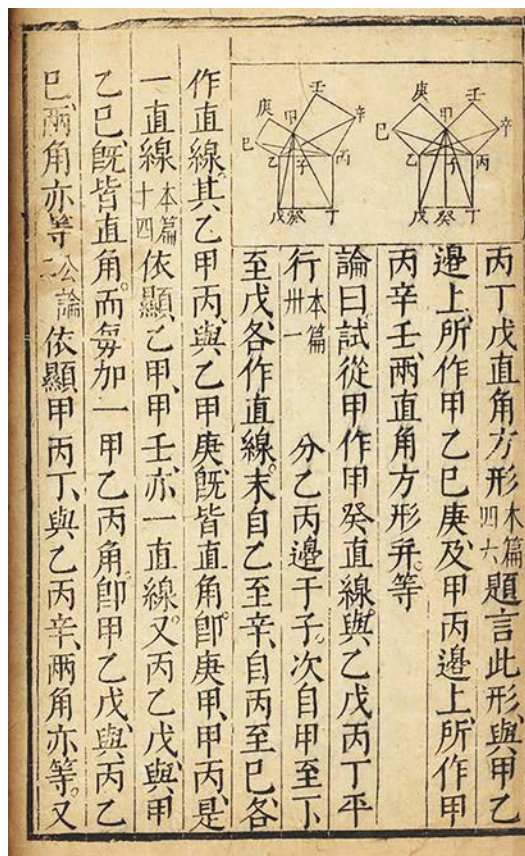 庚 甲 壬 辛 巳 乙 子 丙 戊 癸 丁
庚 甲 壬 辛 巳 乙 子 丙 戊 癸 丁
丙丁戊直角方形本篇四六題言此形、與甲乙
邊上、所作甲乙巳庚、及甲丙邊上、所作甲
丙辛壬、兩直角方形并、等
論曰、試從甲作甲癸直線、與乙戊丙丁平
行本篇卅一分乙丙邊于子。次自甲至丁、
至戊、各作直線。末自乙至辛、自丙至巳、各
作直線。其乙甲丙、與乙甲庚、旣皆直角。卽庚甲、甲丙、是
一直線本篇十四依顯、乙甲、甲壬、亦一直線。又丙乙戊、與甲
乙巳、旣皆直角。而每加一甲乙丙角。卽甲乙戊、與丙乙
巳、兩角亦等公論二依顯、甲丙丁、與乙丙辛、兩角亦等。又